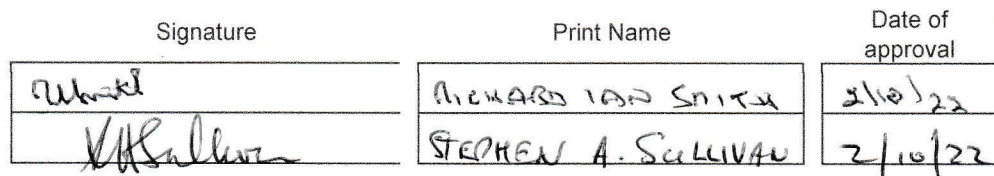 Signature Print Name Date of approval
RICHARD IAN SMITH 2/10/22
STEPHEN A. SULLIVAN 2/10/22